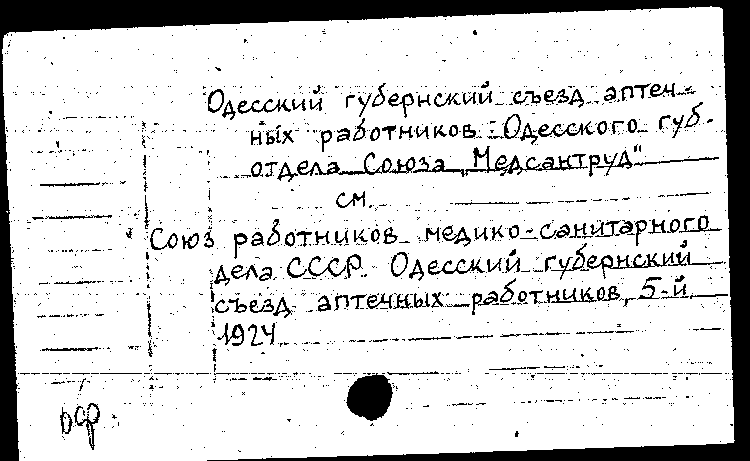 Одесский губернский съезд аптеч-
ных работников Одесского губ.
отдела Союза „Медсантруд"
см.
Союз работников медико-санитарного
дела СССР. Одесский губернский
съезд аптечных работников, 5-й.
1924